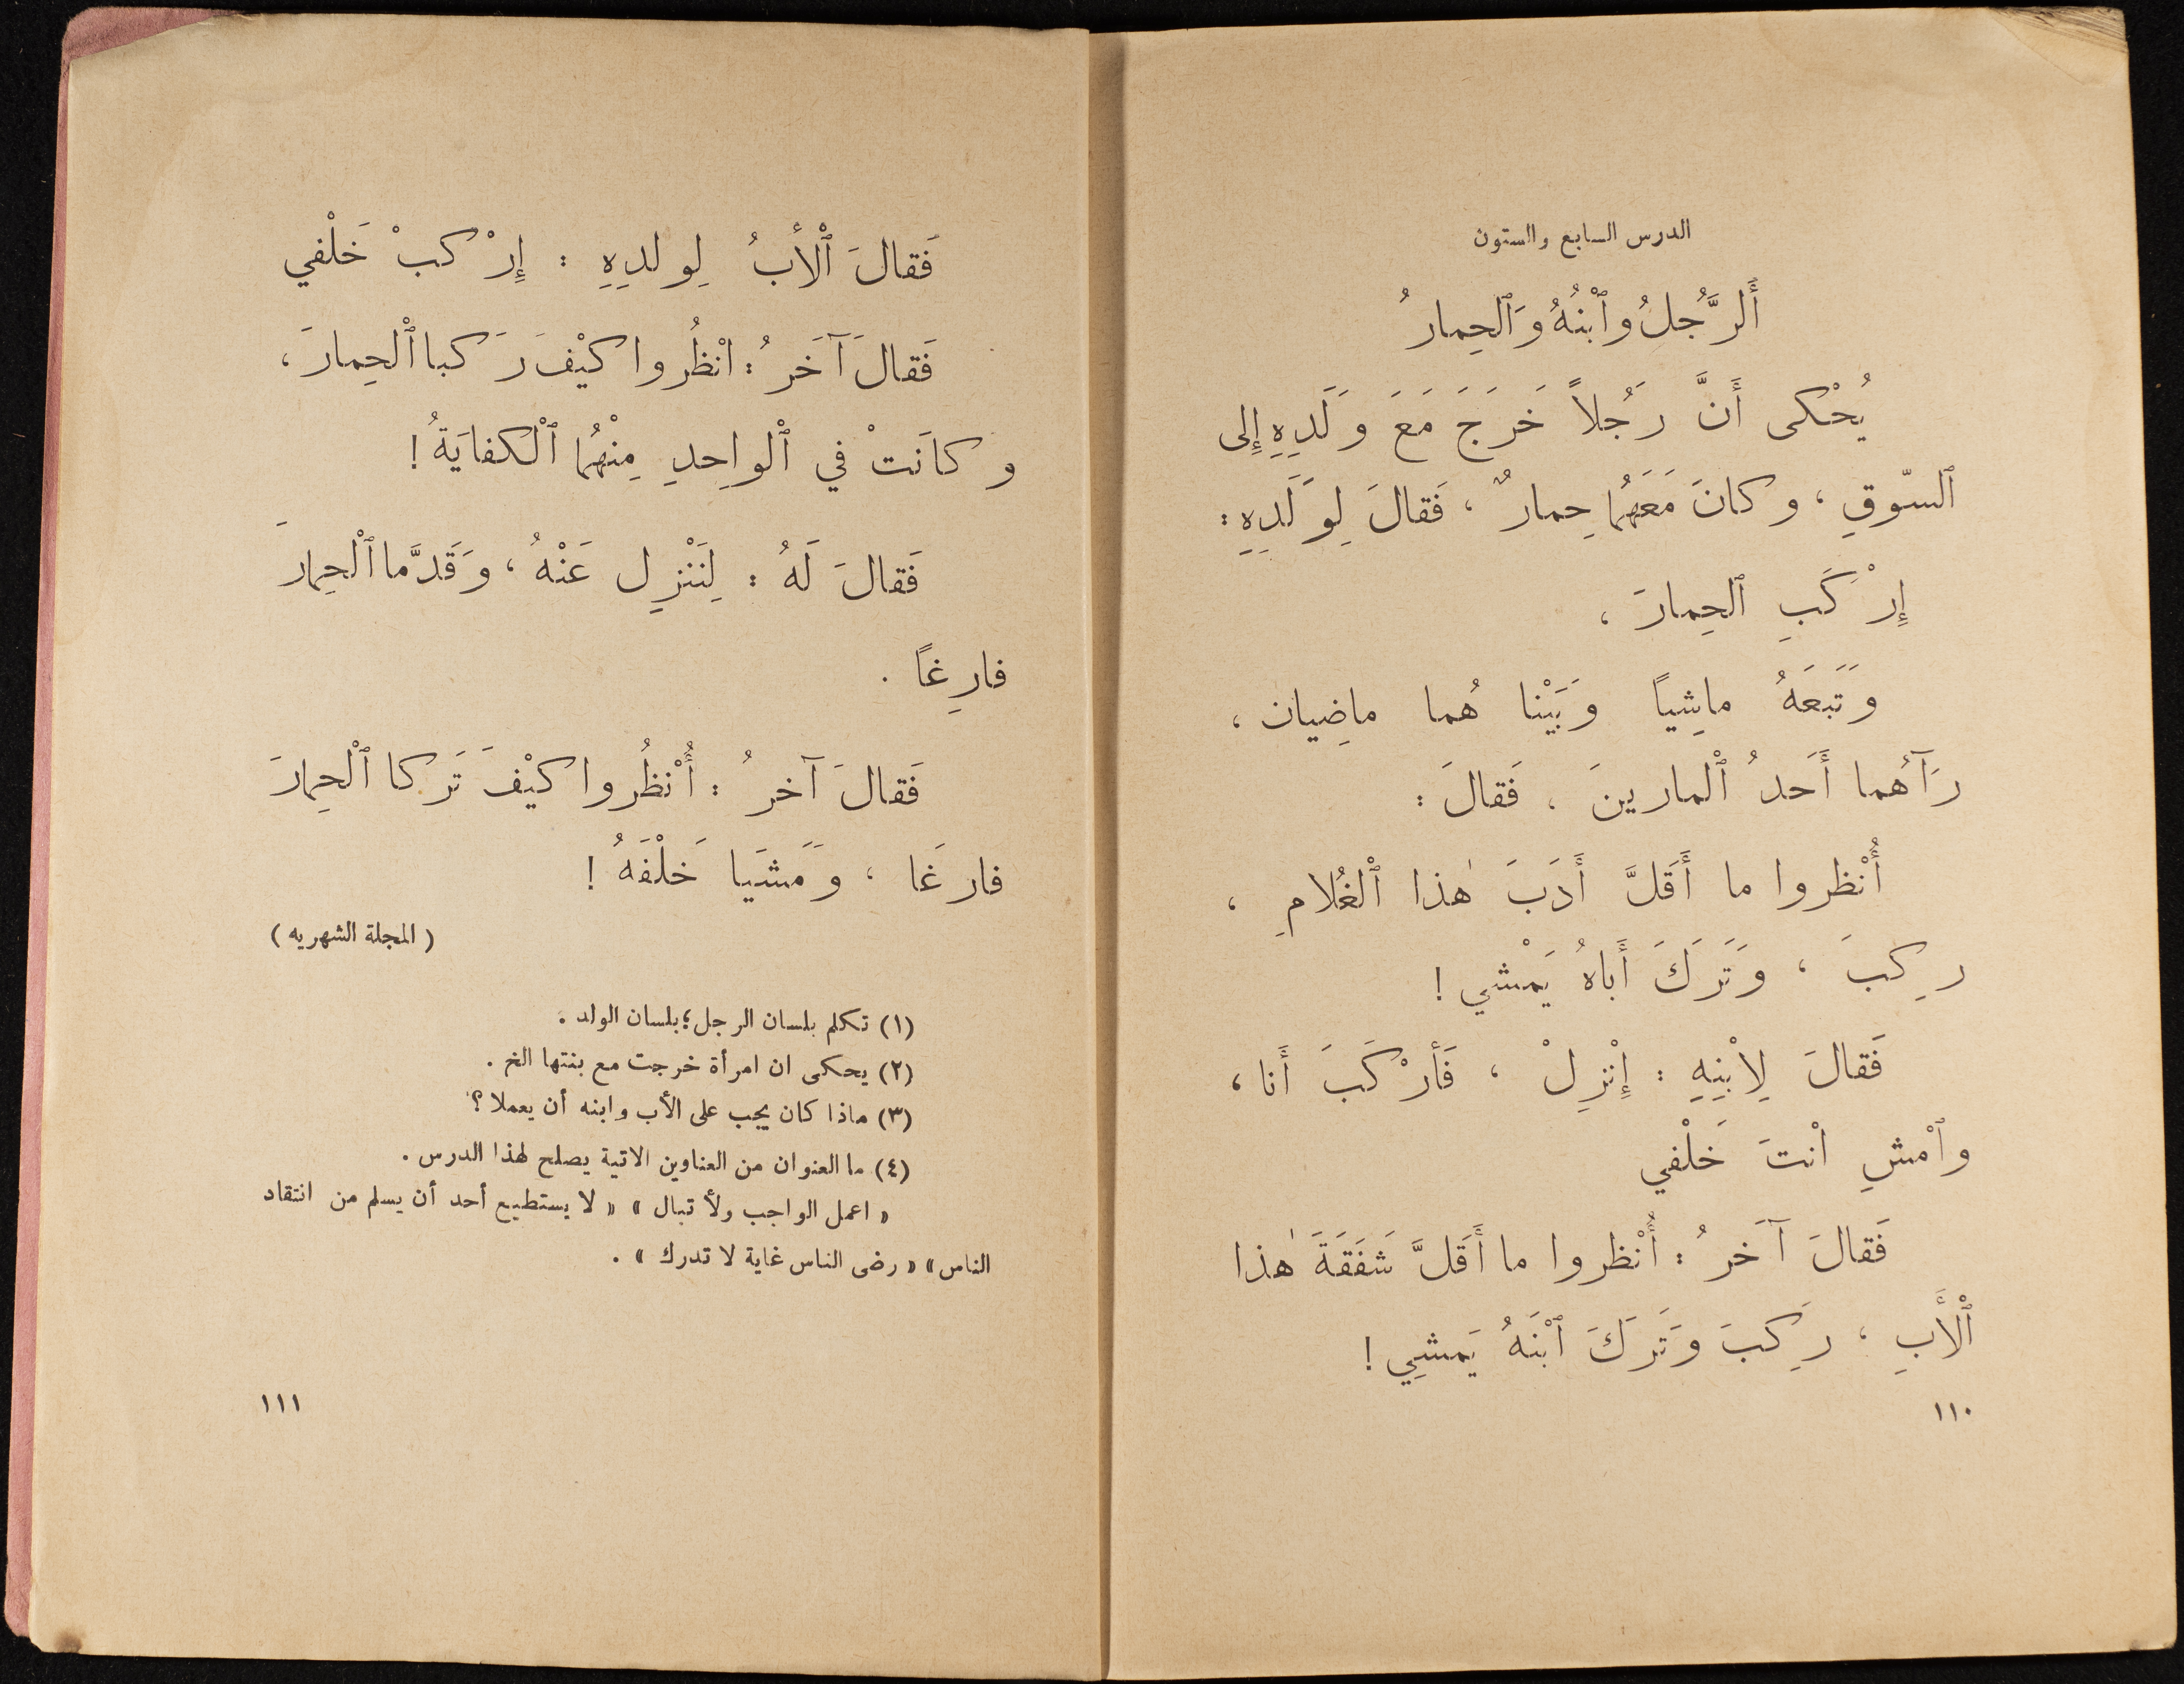 الدرس السابع والستون
أَلرَّجُلُ وٱبْنُهُ وَٱلحِمارُ
يُحْكى أَنَّ رَجُلاً خَرَجَ مَعَ وَلَدِهِ إِلى
ٱلسّوقِ ، وكانَ مَعَهُما حِمارٌ ، فَقالَ لِوَلَدِهِ :
إِرْكَبِ ٱلحِمارَ ،
وَتَبعَهُ ماشِياً وَبَيْنا هُما ماضِيان ،
رَآهُما أَحَدُ ٱلْمارينَ ، فَقالَ :
أُنْظروا ما أَقَلَّ أَدَبَ هٰذا ٱلْغُلامِ ،
رِكبَ ، وَتَرَكَ أَباهُ يَمْشي !
فَقالَ لِابْنِهِ : إِنْزِلْ ، فَأرْكَبَ أَنا ،
وٱمْشِ انْتَ خَلْفي
فَقالَ آخَرُ : أُنْظروا ما أَقَلَّ شَفَقَةَ هٰذا
ٱلْأَبِ ، رَكِبَ وَتَرَكَ ٱبْنَهُ يَمشِي !
١١٠
فَقالَ ٱلْأبُ لِولدِهِ : إِرْكبْ خَلْفي
فَقالَ آخَرُ : انْظُروا كيْفَ رَكبا ٱلْحِمارَ ،
وكاَنَتْ في ٱلْواحِدِ مِنْهُما ٱلْكفايَةُ !
فَقالَ لَهُ : لِنَنْزِل عَنْهُ ، وَقَدَّما ٱلْحِمارَ
فارِغاً .
فَقالَ آخرُ : أُنْظُروا كيْفَ تَركا ٱلْحِمارَ
فارغَا ، وَمَشَيا خَلْفَهُ !
( المجلة الشهريه )
(١) تكلم بلسان الرجل ؛ بلسان الولد .
(٢) يحكى ان امرأة خرجت مع بنتها الخ .
(٣) ماذا كان يجب على الأب وابنه أن يعملا ؟
(٤) ما العنوان من العناوين الاتية يصلح لهذا الدرس .
« اعمل الواجب ولأ تبال » « لا يستطيع أحد أن يسلم من انتقاد
الناس » « رضى الناس غاية لا تدرك » .
١١١